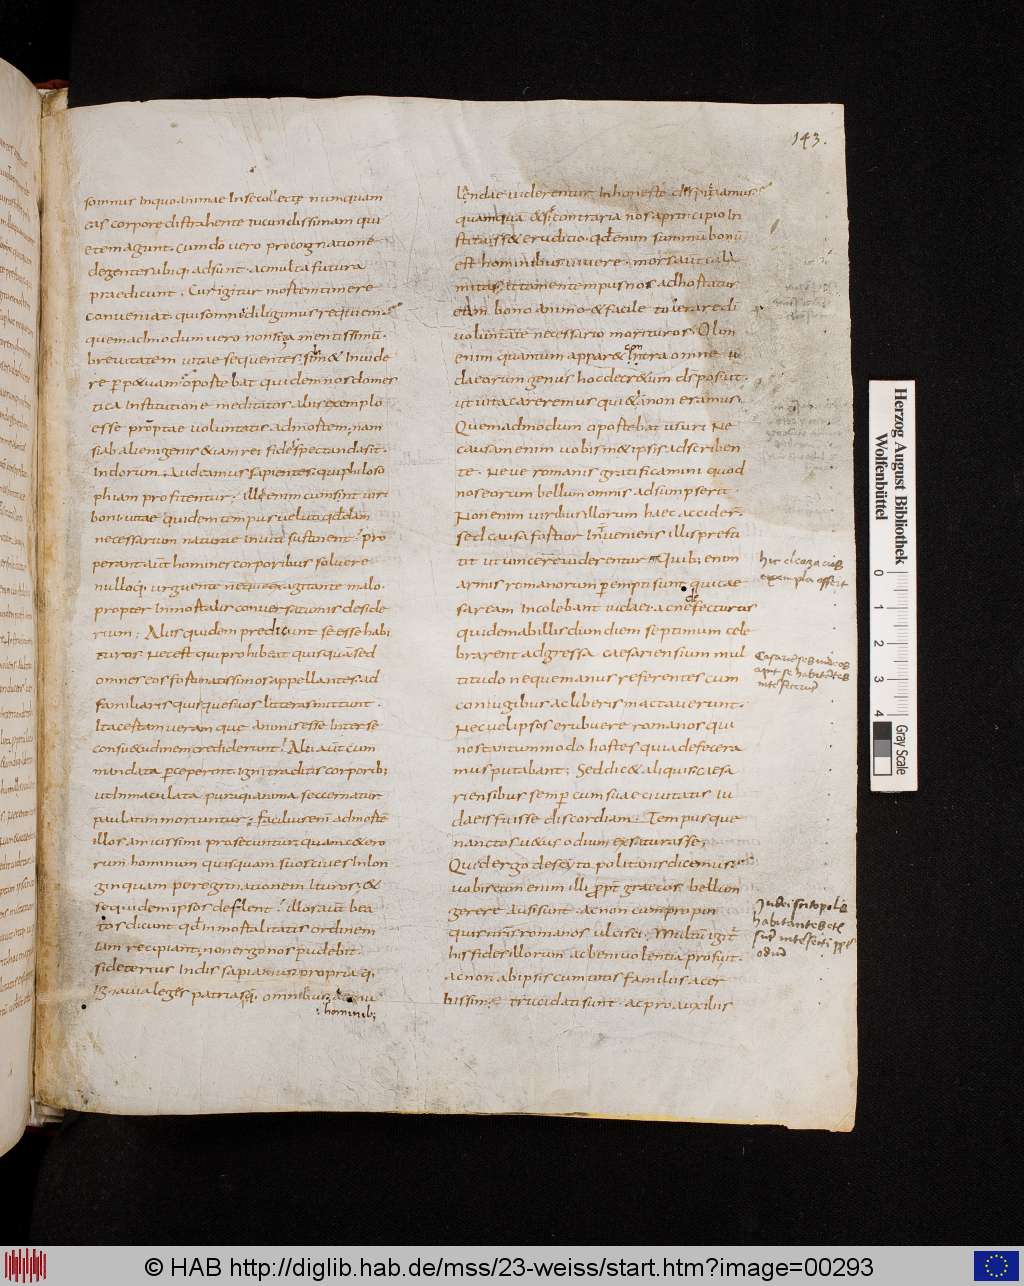 143.
somnus inquo animae insecollectę numquam
eas corpore distrahente iucundissimam qui
etem agunt. cum dō vero procognatione
degentes ubiq; adsunt. ac multa futura
praedicunt. Cur igitur mortem timere
conveniat. qui somno diligimus requiem
quemadmodum vero non sit amentissimū.
brevitatem vitae sequentes. sibi & invide
re perpetuam. oportebat quidem nos domes
tica institutione meditatos. aliis exemplo
esse promptae voluntatis ad mortem; nam
si ab alienigenis etiam rei fides spectanda sit.
Indorum. audeamus sapientes. qui philoso
phiam profitentur. illi enim cum sint viri
boni. vitae quidem tempus velut quoddam
necessarium naturae inviti sustinent. pro
perant aut homines corporibus solvere
nulloq; urguente neque exagitante malo.
propter inmortalis conversationis deside
rium; Aliis quidem predicunt se esse habi
turos. Nec est qui prohibeat quisquā. sed
omnes eos fortunatissimos appellantes. ad
familiaris quisque suos litteras mittunt.
Ita certam veramque animis esse inter se
consuetudinem crediderunt! Ali aut cum
mandata perceperint. igni traditis corporib;
ut inmaculata pura q; anima secernatur
paulatim moriuntur; facilius enī ad mortē
illos amicissimi prosecuntur. quam cetero
rum hominum quisquam suos cives in lon
ginquam peregrinationem ituros; &
se quidem ipsos deflent! illos aut bea
tos dicunt qd inmortalitatis ordinem
iam recipiant; non ergo nos pudebit.
si deterius indis sapiamus propriaq;
ignavia leges patriasq; omnibus
: hominib;
lendae viderentur inhoneste despiciamus
quamquā & si contraria nos a principio in
stituisset eruditio. qd enim summū bonū
est hominibus vivere. mors aut cala
mitas. et tamen tempus nos adhortatur
etiam bono animo & facile tolerare di
voluntate necessario morituros. Olim
enim quantum apparet contra omne iu
daeorum genus hoc decretum ds posuit.
ut vita careremus qui & si non eramus.
Quemadmodum oportebat usuri Ne
causam enim vobismetipsis adscriben
te. Neve romanis gratificamini quod
nos eorum bellum omnis adsumpserit.
Non enim viribus illorum haec accider.
sed causa fortior inveniens illis presti
tit ut vincere viderentur Quib; enim
armis romanorum perempti sunt qui cae
saream incolebant iudaei. ac ne defecturos
quidem ab illis dum diem septimum cele
brarent adgressa caesariensium mul
titudo neque manus referentes cum
coniugibus ac liberis mactaverunt.
Nec vel ipsos erubuere romanos qui
nos tantummodo hostes quia defecera
mus putabant; Sed dicet aliquis caesa
riensibus semper cum suae civitatis iu
daeis fuisse discordiam. Tempusque
nanctos vetus odium exsaturasse.
Quid ergo de scyto politanis dicemus.
vobiscum enim illi propt graecos bellum
gerere ausi sunt. ac non cum propin
quis nris romanos ulcisci. Multū igit
his fides illorum ac benivolentia profuit.
ac non ab ipsis cum totis familiis acer
bissimę trucidati sunt. ac pro auxiliis
Herzog August Bibliothek
Wolfenbüttel
0
1
2
3
4
Gray Scale
© HAB http://diglib.hab.de/mss/23-weiss/start.htm?image=00293